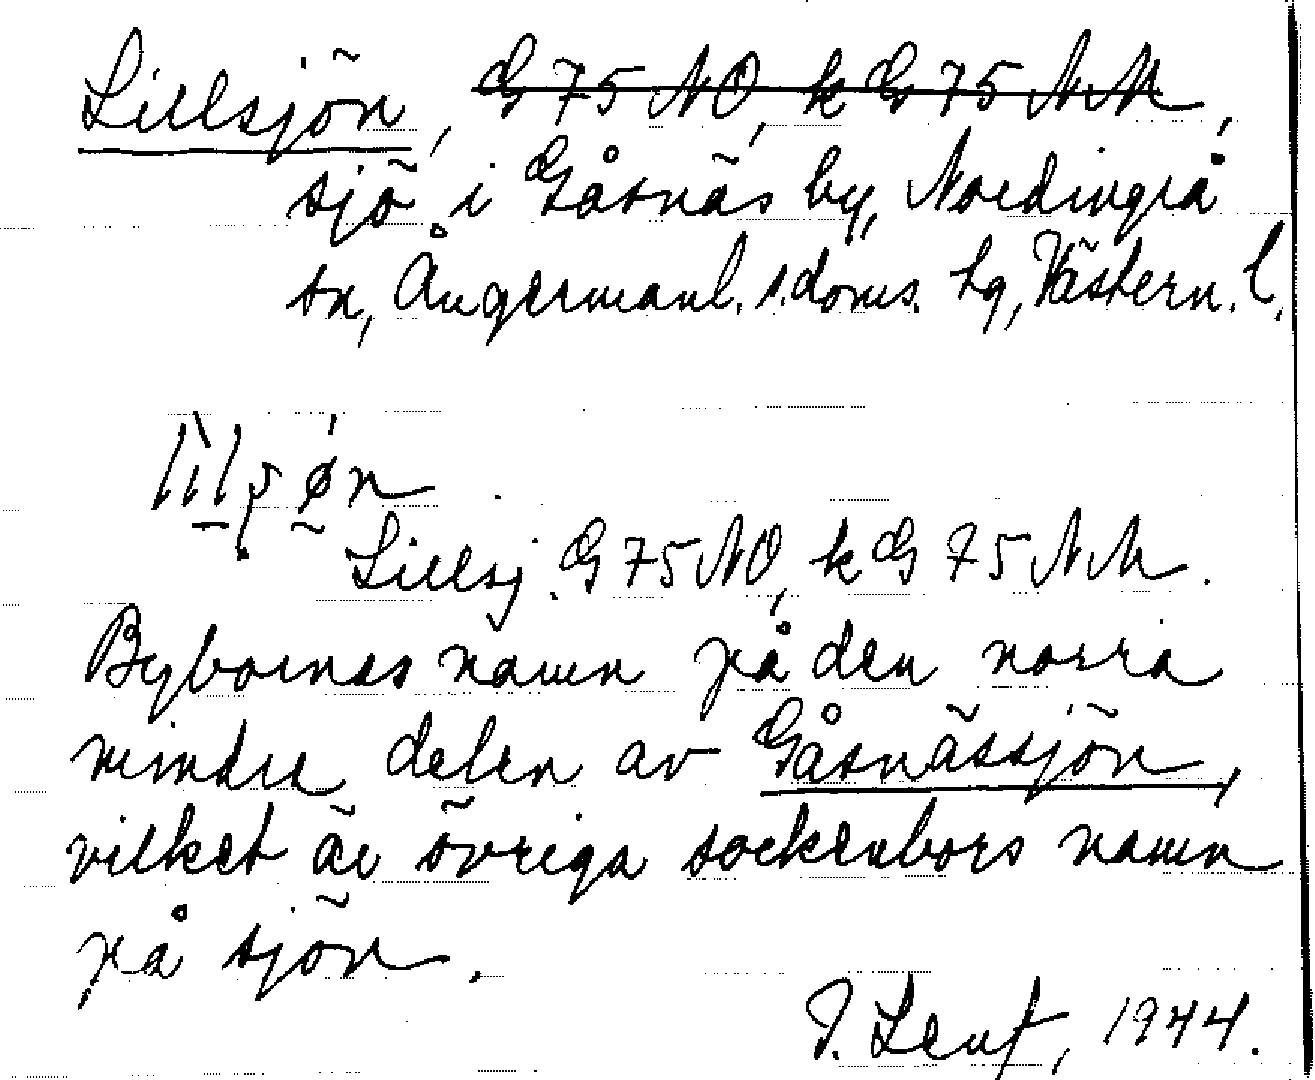 Lillsjön, G 75 NO, k G 75 NM,
sjö i Gåsnäs by, Nordingrå
sn, Ångermanl. s. doms. tg, Västern. l.
Lillsj. G 75 NO, k G 75 NM.
Bybornas namn på den norra
mindre delen av Gåsnässjön,
vilket är övriga sockenbors namn
på sjön.
Leuf, 1944.